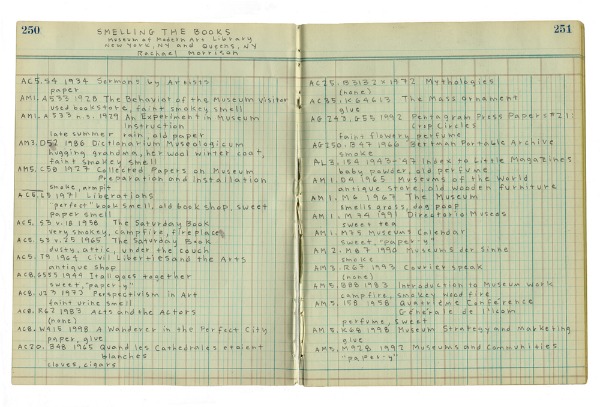 250
SMELLING THE BOOKS
Museum of Modern Art Library
New York, NY and Queens, NY
Rachael Morrison
AC5. S4 1934 Sermons by Artists
paper
AM1. A533 1928 The Behavior of the Museum Visitor
used bookstore, faint smokey smell
AM1. A533 n.s. 1929 An Experiment in Museum
Instruction
late summer rain, old paper
AM3. D52 1986 Dictionarium Museologicum
hugging grandma, her wool winter coat,
faint smokey smell
AM5. C56 1927 Collected Papers on Museum
Preparation and Installation
smoke, armpit
AC5. L5 1971 Liberations
"perfect" book smell, old book shop, sweet
paper smell
AC5. S3 v.18 1958 The Saturday Book
very smokey, campfire, fireplace
AC5. S3 v.25 1965 The Saturday Book
dusty, attic, under the couch
AC5. T9 1964 Civil Liberties and the Arts
antique shop
AC8. G555 1944 It all goes together
sweet, "paper-y"
AC8. J23 1973 Perspectivism in Art
faint urine smell
AC8. R67 1983 Acts and the Actors
(none)
AC8. W415 1998 A Wanderer in the Perfect City
paper, glue
AC20. B48 1965 Quand les Cathedrales etaient
blanches
cloves, cigars
251
AC25. B3132 X 1972 Mythologies
(none)
AC35. K64613 The Mass Ornament
glue
AG243. G55 1992 Pentagram Press Papers #21:
Crop Circles
faint flowery perfume
AG250. B47 1966 Bertman Portable Archive
smoke
AL3. 154 1943-47 Index to Little Magazines
baby powder, old perfume
AM1. D4 1965 Museums of the World
antique store, old wooden furniture
AM1. M6 1967 The Museum
smells grass, dog poop
AM1. M74 1991 Directorio Museos
sweet tea
AM1. M75 Museums Calendar
sweet, "paper-y"
AM2. M87 1990 Museums der Sinne
smoke
AM3. R67 1993 Courier speak
(none)
AM5. B88 1983 Introduction to Museum Work
campfire, smokey wood fire
AM5. 158 1958 Quatrieme Conference
Générale de l'Icom
perfume, sweet
AM5. K68 1998 Museum Strategy and Marketing
glue
AM5. M928 1992 Museums and Communities
"paper-y"